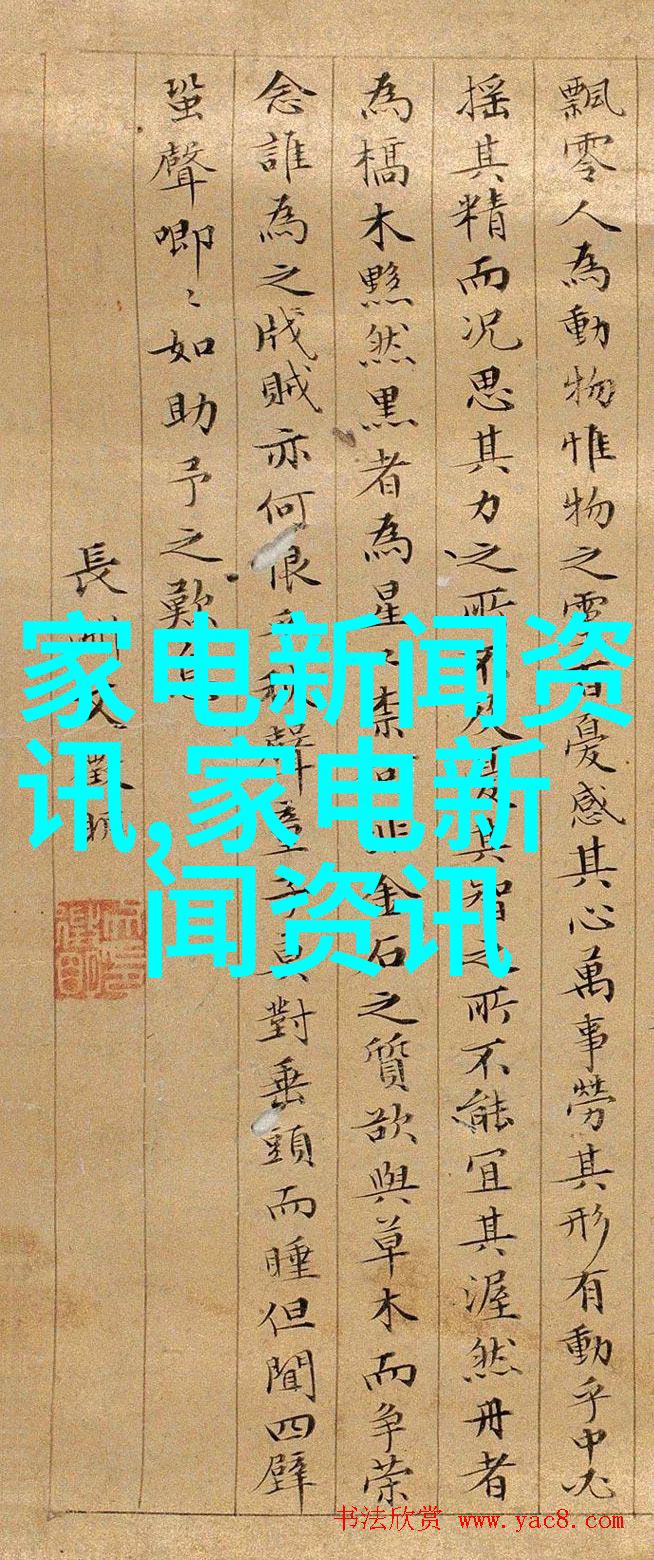 飄零人為動物惟物之靈百憂感其心萬事勞其形有動乎中必
搖其精而况思其力之所不及憂其智之所不能宜其渥然丹者
為槁木黟然黒者為星星柰何非金石之質欲與草木而争荣
念誰為之戕賊亦何恨乎秋聲童子莫對垂頭而睡但聞四壁
蛩聲唧〻如助予之歎息
長洲文徵明
家电新闻资
讯,家电新
闻资讯
书法欣赏 www.yac8.com